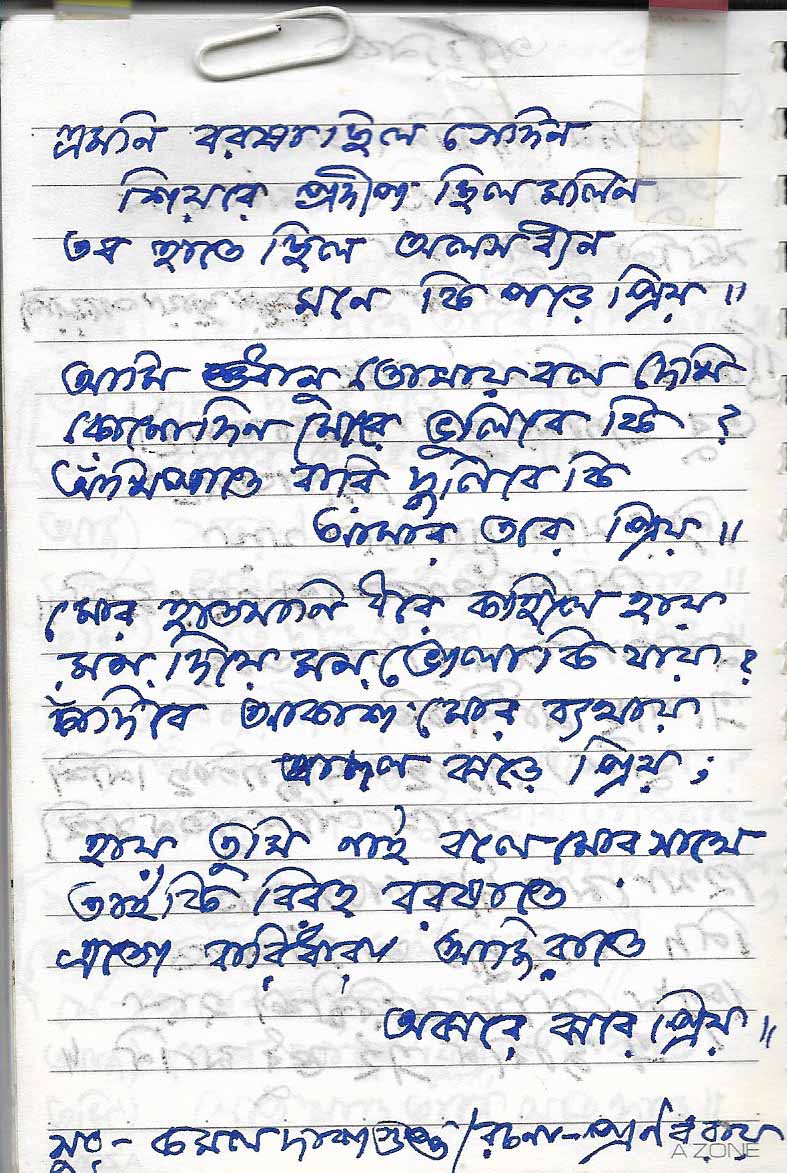 এমনি বরষা ছিল সেদিন
শিয়রে প্রদীপ ছিল মলিন
তব হাতে ছিল অলস বীন
মনে কি পড়ে প্রিয় ॥
আমি শুধানু তোমায় বল দেখি
কোনোদিন মোরে ভুলিবে কি ?
আঁখিপাতে বারি দুলিবে কি
আমার তরে প্রিয় ॥
মোর হাতখানি ধরে কহিলে হায়
মন দিয়ে মন ভোলা কি যায় ?
কাঁদিবে আকাশ মোর ব্যথায়
বাদল ঝড়ে প্রিয় ;
হায় তুমি নাই বলে মোর সাথে
তাই কি বিরহ বরষাতে
এতো বারিধারা আজি রাতে
অঝোরে ঝরে প্রিয় ॥
সুর - কমল দাশগুপ্ত / রচনা - প্রণব রায়
A ZONE